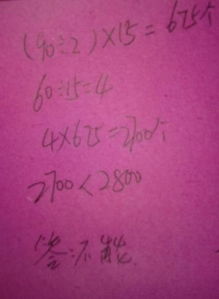 (90÷2)×15=675个
60÷15=4
4×675=2700个
2700<2800
答:不能